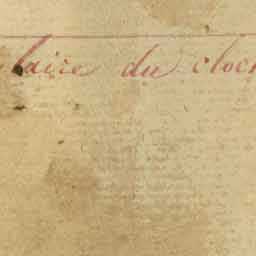 laire du cloc